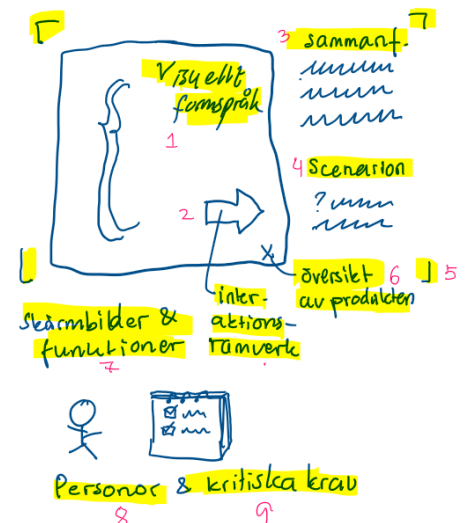 3 sammanf.
Visuellt
formspråk
1
4 Scenarion
?
2
översikt 6
av produkten
5
inter-
aktions-
ramverk
Skärmbilder &
funktioner
7
Personor & kritiska krav
8 9